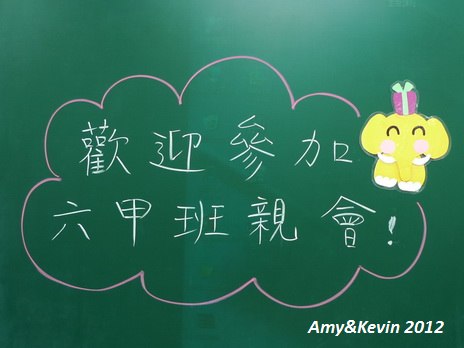 歡迎參加
六甲班親會!
Amy&Kevin 2012